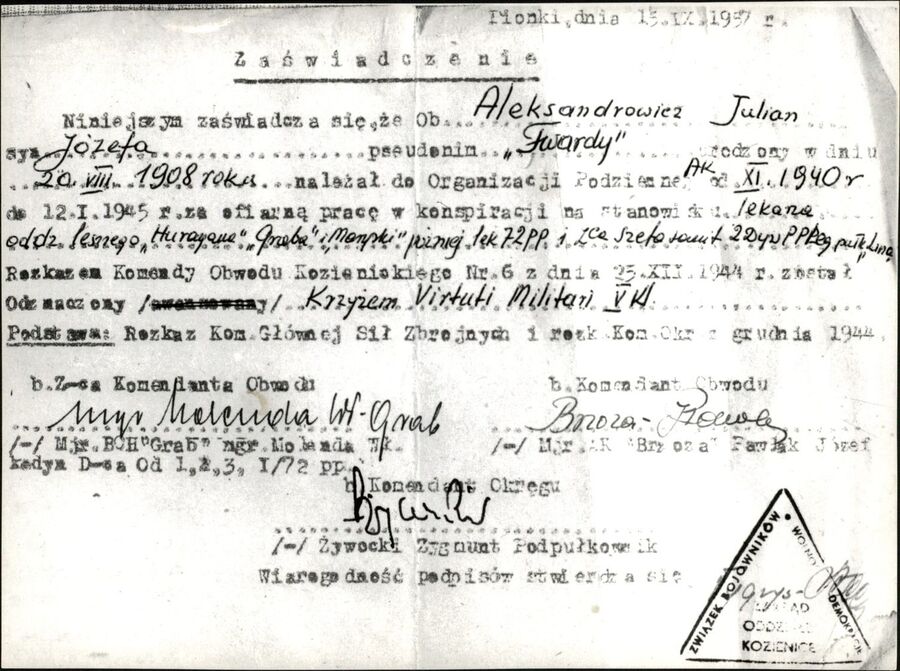 Pionki, dnia 15.IX.1957 r.
Zaświadczenie
Niniejszym zaświadcza się, że Ob. Aleksandrowicz Julian
syn Józefa pseudonim „Twardy" urodzony w dniu
20 VIII 1908 roku należał do Organizacji Podziemnej AK od XI.1940 r
do 12.I.1945 r.za ofiarną pracę w konspiracji na stanowisku lekarza
oddz. leśnego „Huragana" „Graba" i „Maryśki" później lek 72 PP. i Zca Szefa sanit 2 Dyw PPLeg
Rozkazem Komendy Obwodu Kozienickiego Nr.6 z dnia 25.XII.1944 r. został
Odznaczony /awansowany/ Krzyżem Virtuti Militari V Kl
Podstawa: Rozkaz Kom.Głównej Sił Zbrojnych i rozk.Kom.Okr z grudnia 1944.
b.Z-ca Komendanta Obwodu
b.Komendant Obwodu
mgr Molenda Wł- Grab
Brzoza-
/-/ Mjr.BCH"Grab" mgr.Molenda Wł.
/-/ Mjr.AK "Brzoza" Pawlak Józef
kedyw D-ca Od 1,2,3, I/72 pp.
b Komendant Okręgu
/-/ Żywocki Zygmunt Podpułkownik
Wiarogodność podpisów stwierdza się
ZWIĄZEK BOJOWNIKÓW • WOLNO DEMOKRACJĘ
ODDZIAŁ
KOZIENICE